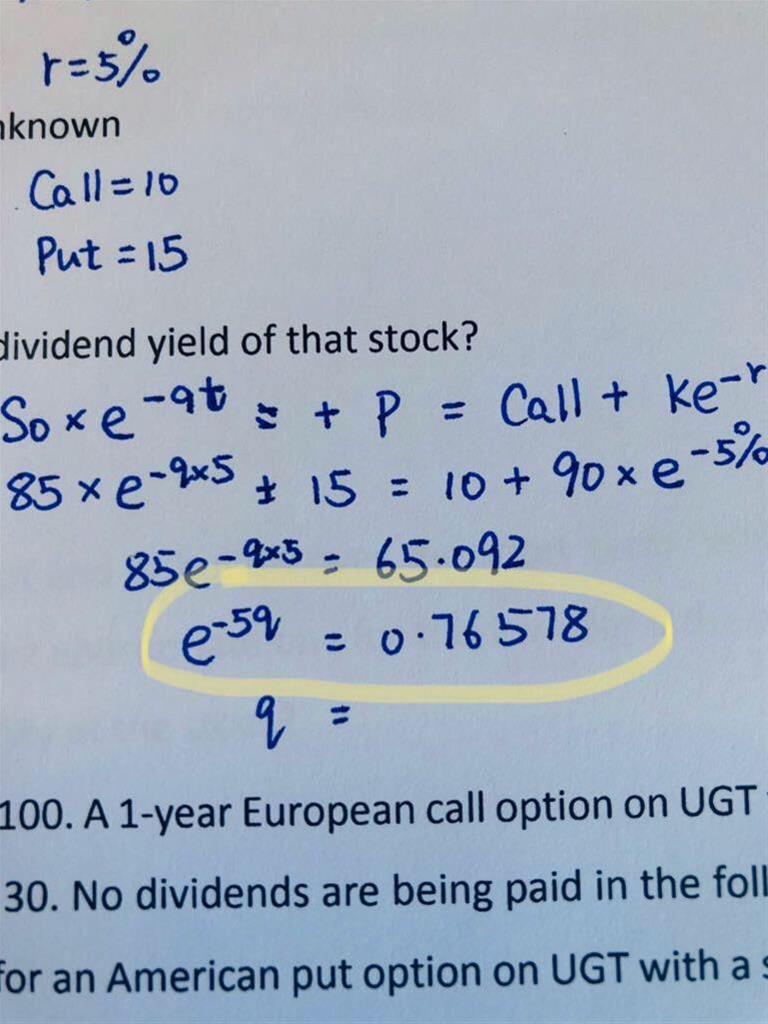 r=5%
nknown
Call=10
Put=15
dividend yield of that stock?
So × e^-qt = + P = Call + ke^-r
85 × e^-q×5 ± 15 = 10 + 90 × e^-5%
85e^-q×5 = 65.092
e^-5q = 0.76578
q =
100. A 1-year European call option on UGT
30. No dividends are being paid in the foll
for an American put option on UGT with a s